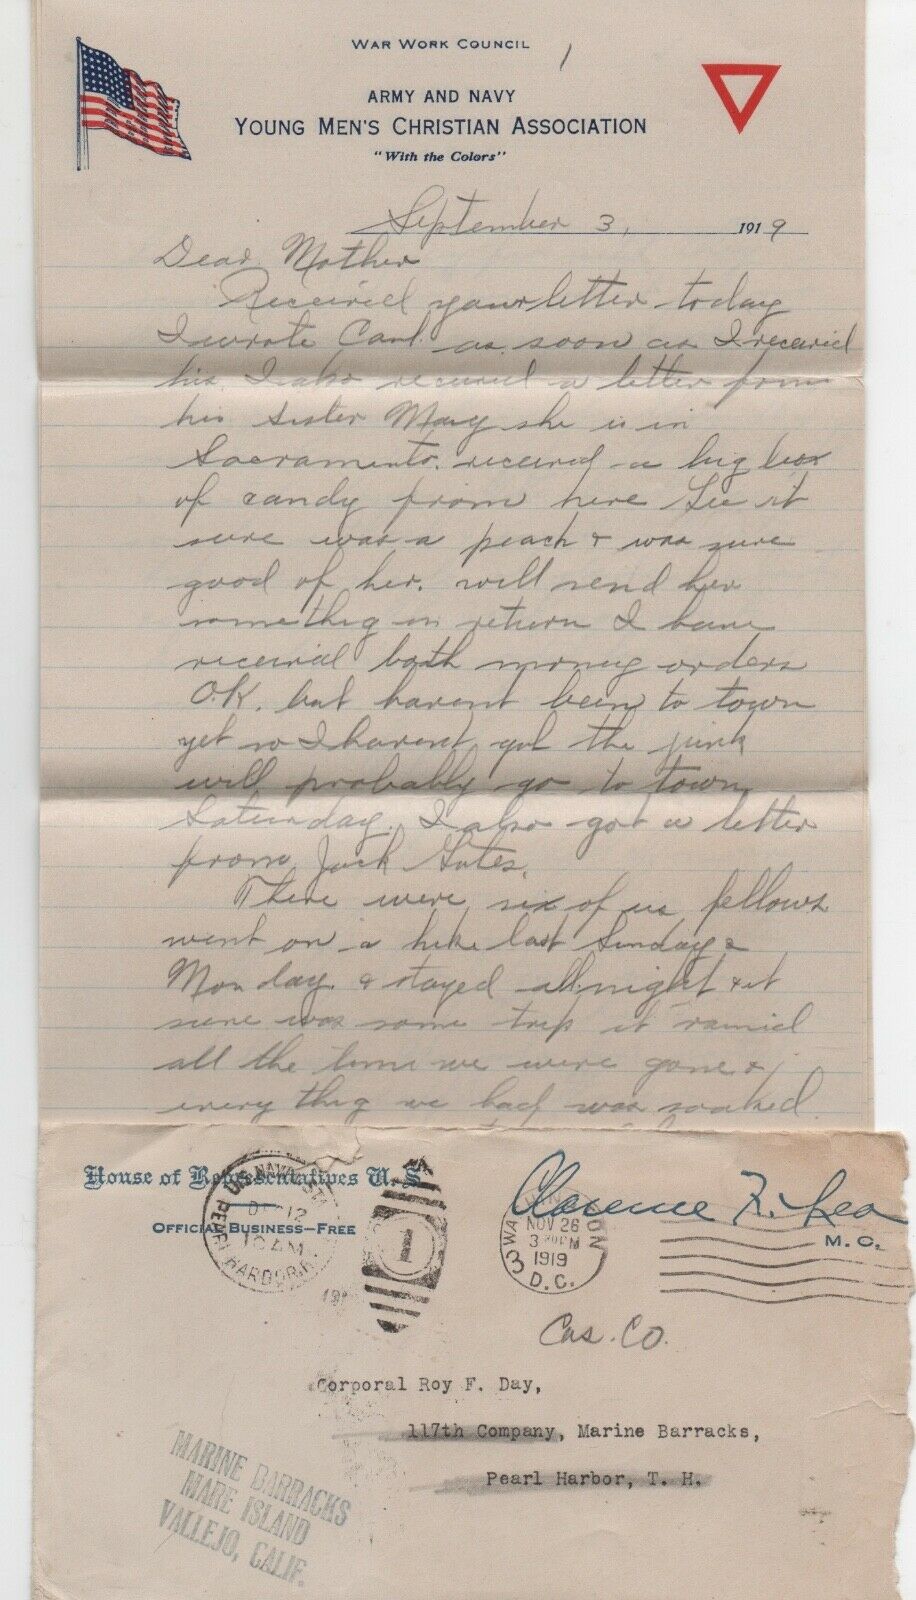 WAR WORK COUNCIL
1
ARMY AND NAVY
YOUNG MEN'S CHRISTIAN ASSOCIATION
"With the Colors"
September 3, 1919
Dear Mother
Received your letter today
I wrote Carl as soon as I received
his I also received a letter from
his sister Mary she is in
Sacramento. received a big box
of candy from here Gee it
sure was a peach & was sure
good of her. will send her
somethig in return I have
received both money orders
O.K. but havent been to town
yet so I havent got the junk
will probably go to town
Saturday. I also got a letter
from Jack Gates.
There were six of us fellows
went on a hike last Sunday &
Monday & stayed all night & it
sure was some trip it rained
all the time we were gone &
every thig we had was soaked.
House of Representatives U.S.
OFFICIAL BUSINESS—FREE
U.S. NAVAL STA
12
10 AM
PEARL HARBOR
191
1
Clarence F. Lea
M. C.
WASHINGTON
NOV 26
3 PM
1919
3
D.C.
Cas. Co.
Corporal Roy F. Day,
117th Company, Marine Barracks,
Pearl Harbor, T. H.
MARINE BARRACKS
MARE ISLAND
VALLEJO, CALIF.